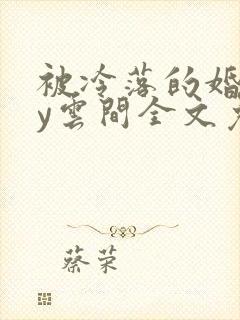 被冷落的婚
y雲間全文免
蔡荣